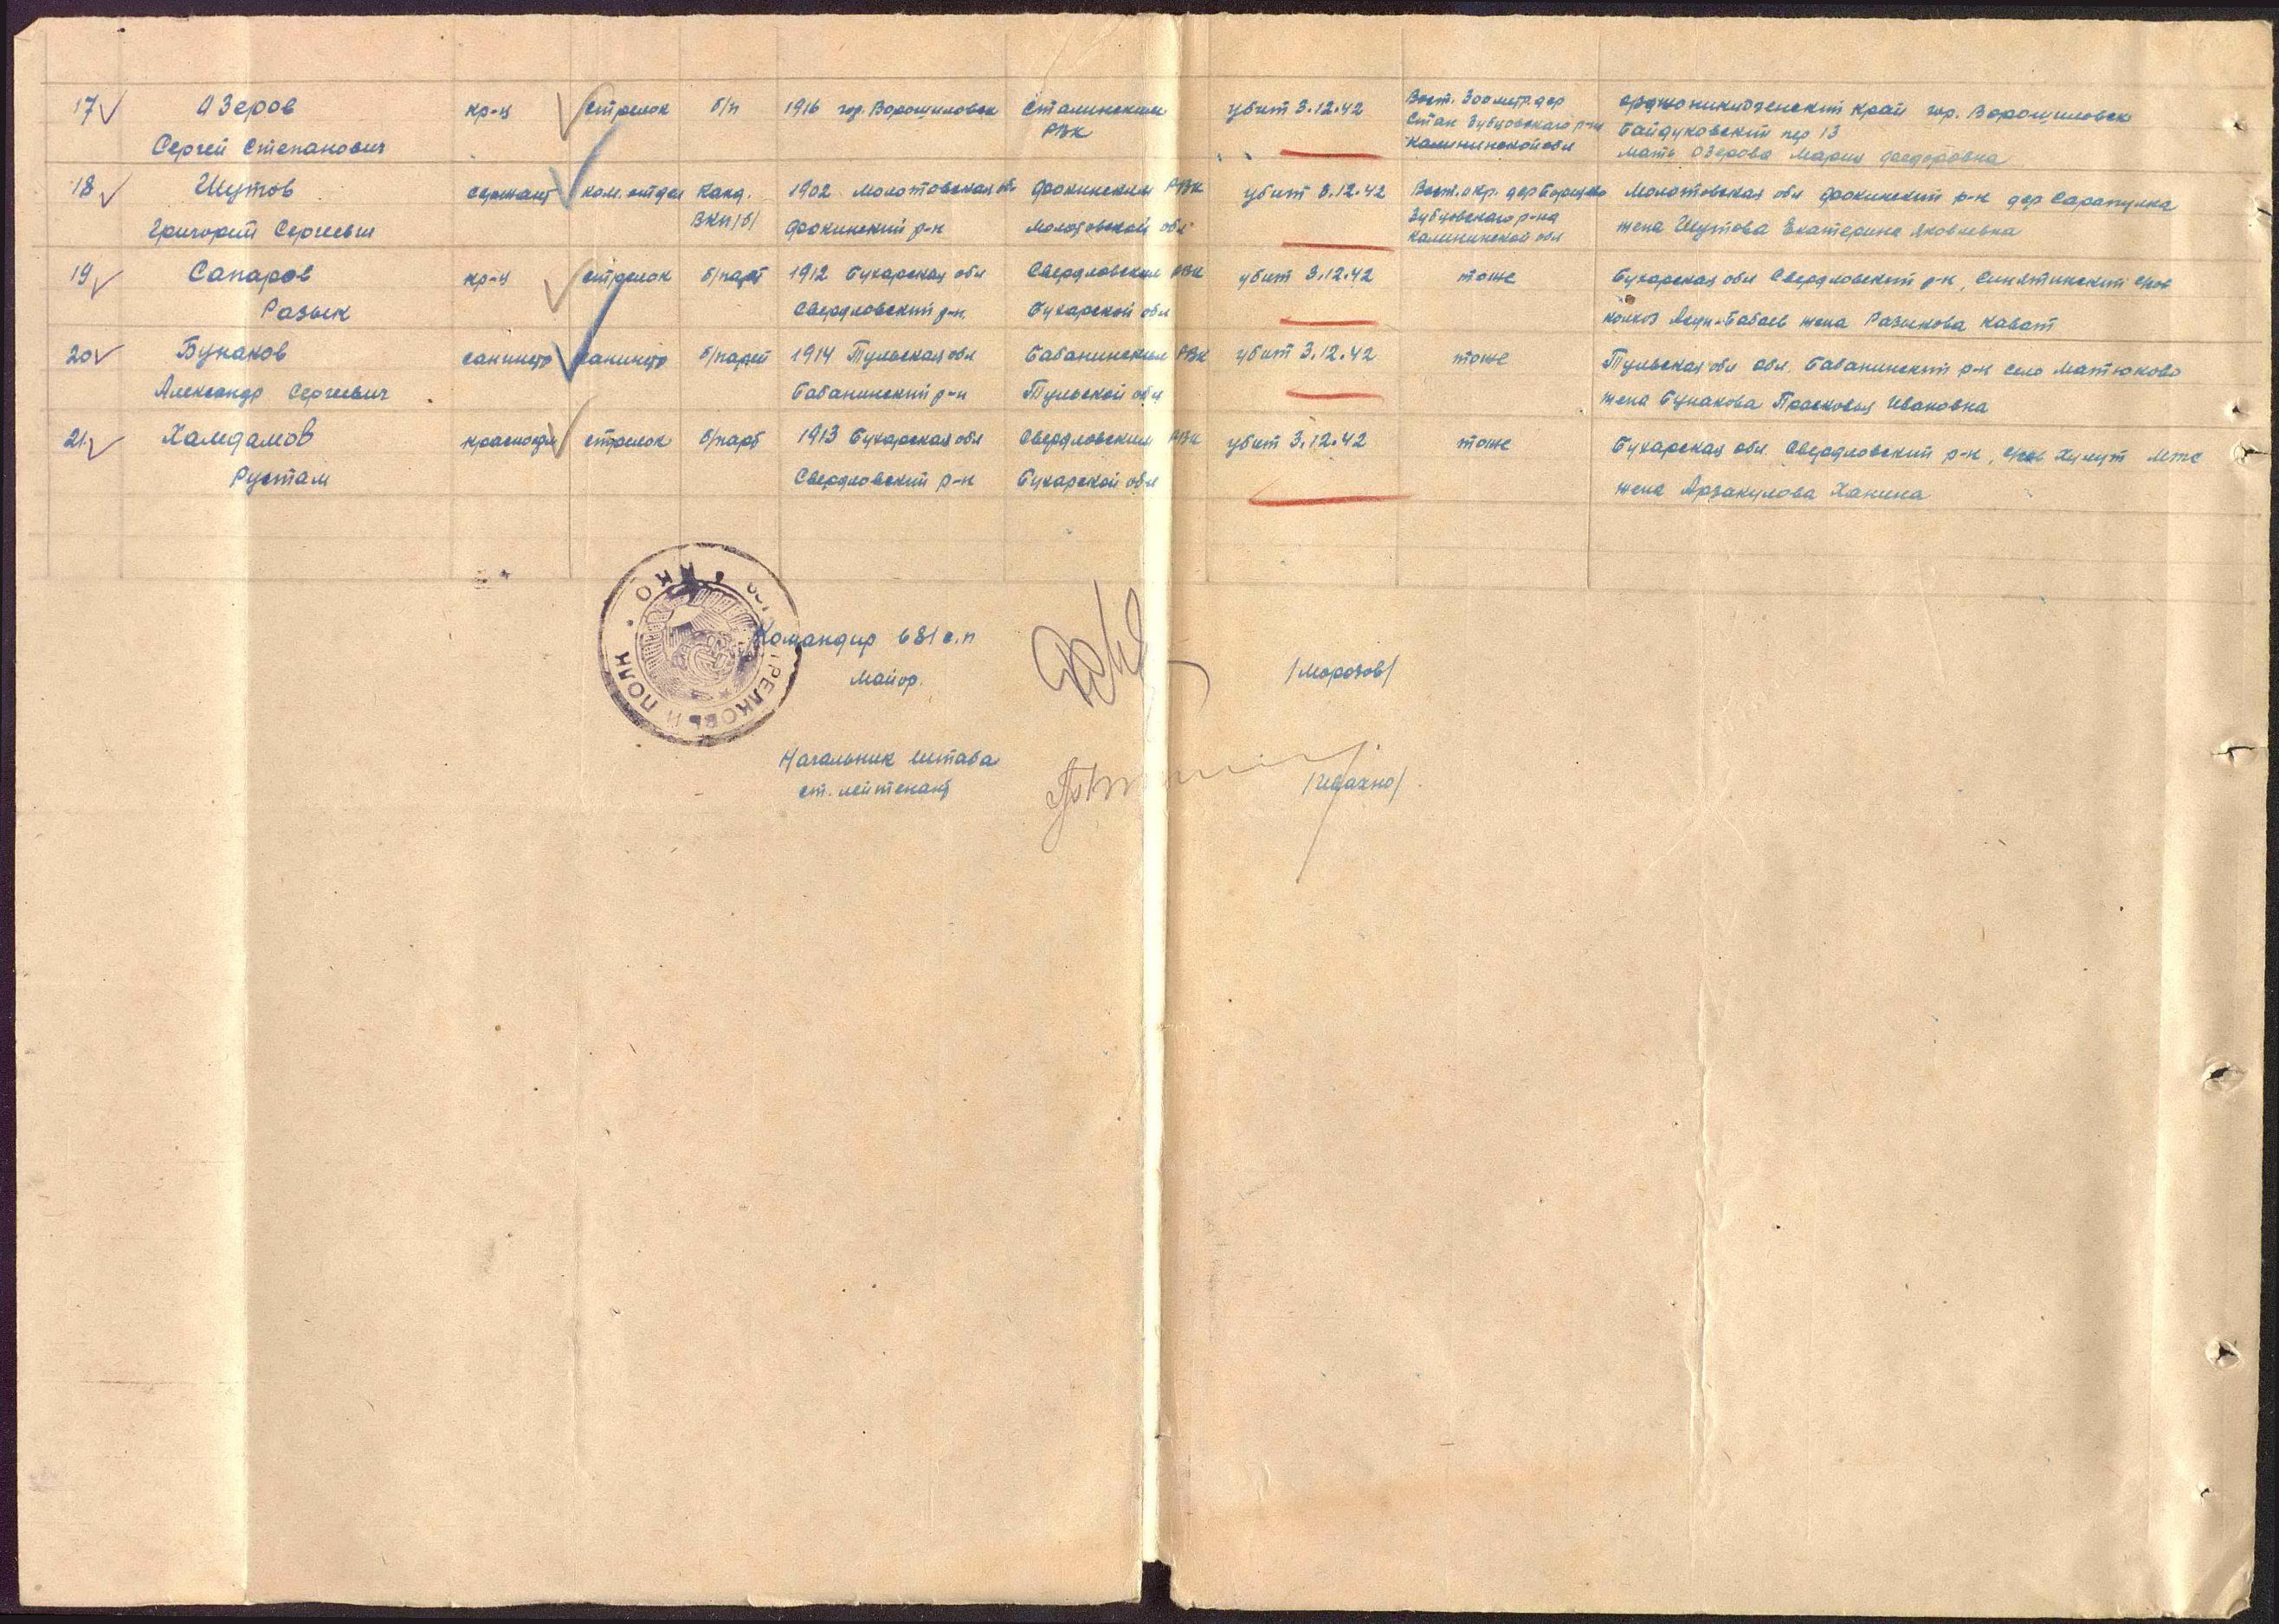 17 Озеров кр-ц стрелок б/п 1916 гор. Ворошиловск Сталинским убит 3.12.42 Вост. 300 метр. дер Орджоникидзенский край гор. Ворошиловск
Сергей Степанович РВК Стан Зубцовского р-на Байдуковский пер 13
Калининской обл Мать Озерова Мария Федоровна
18 Шутов сержант ком. отдел Канд. 1902 Молотовская об Фокинским РВК убит 3.12.42 Вост. окр. дер Молотовская обл Фокинский р-н дер Сарапулка
Григорий Сергеевич ВКП/б/ Фокинский р-н Молотовской обл Зубцовского р-на жена Шутова Екатерина Яковлевна
Калининской обл
19 Сапаров кр-ц стрелок б/парт 1912 Бухарская обл Свердловским РВК убит 3.12.42 тоже Бухарская обл Свердловский р-н,
Разык Свердловский р-н. Бухарской обл колхоз жена Разыкова
20 Бунаков санинстр санинстр б/парт 1914 Тульская обл Бабанинским РВК убит 3.12.42 тоже Тульская обл обл. Бабанинский р-н село Матюково
Александр Сергеевич Бабанинский р-н Тульской обл жена Бунакова Прасковья Ивановна
21 Хамдамов красноарм стрелок б/парт 1913 Бухарская обл Свердловским РВК убит 3.12.42 тоже Бухарская обл. Свердловский р-н, МТС
Рустам Свердловский р-н Бухарской обл жена Арзакулова Ханина
НКО
СТРЕЛКОВЫЙ ПОЛК
Командир 681 с.п
Майор. /Морозов/
Начальник штаба
ст. лейтенант /Ивахно/